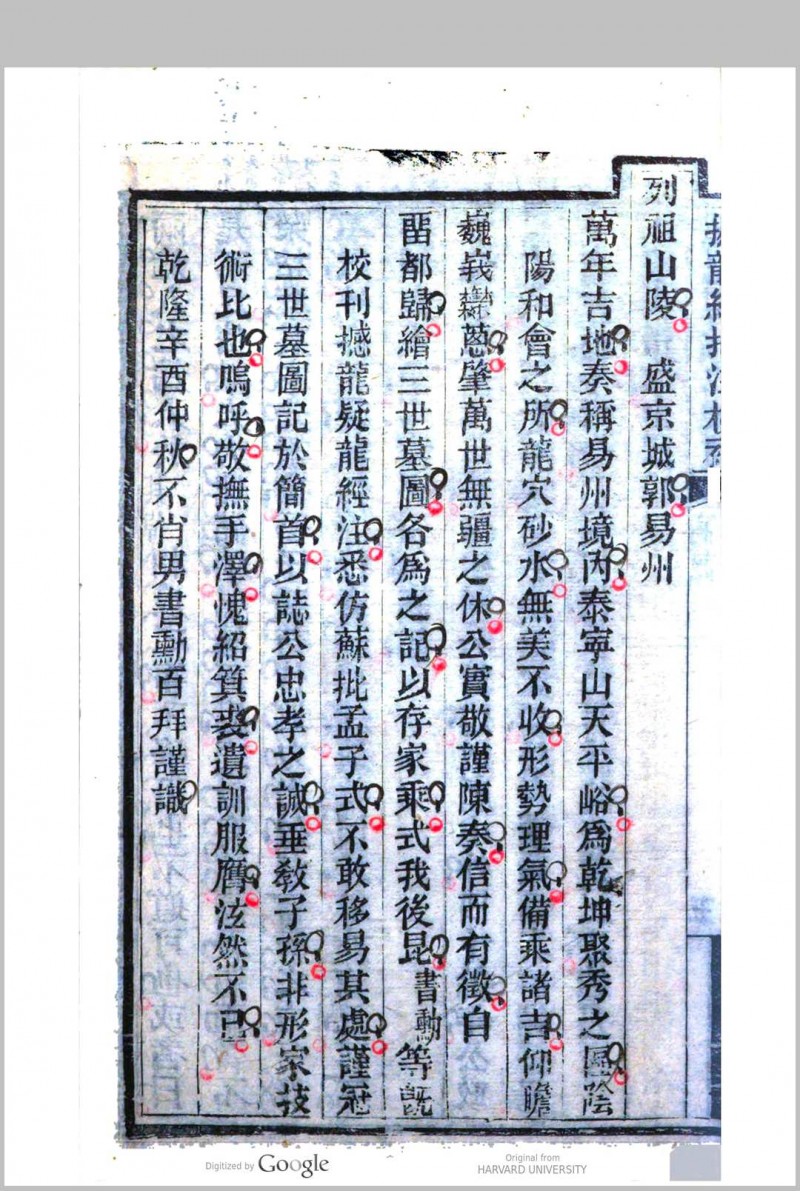 列祖山陵 盛京城郭易州
萬年吉地奏稱易州境內泰寧山天平峪爲乾坤聚秀之區陰
陽和會之所龍穴砂水無美不收形勢理氣備乘諸吉仰瞻
巍峩蔥肇萬世無疆之休公實敬謹陳奏信而有徵自
畱都歸繪三世墓圖各爲之記以存家乘式我後昆書勳等旣
校刊撼龍疑龍經注悉仿蘇批孟子式不敢移易其處謹冠
三世墓圖記於簡首以誌公忠孝之誠垂敎子孫非形家技
術比也嗚呼敬撫手澤愧紹箕裘遺訓服膺泫然不已
乾隆辛酉仲秋不肖男書勳百拜謹識
Digitized by Google
Original from
HARVARD UNIVERSITY